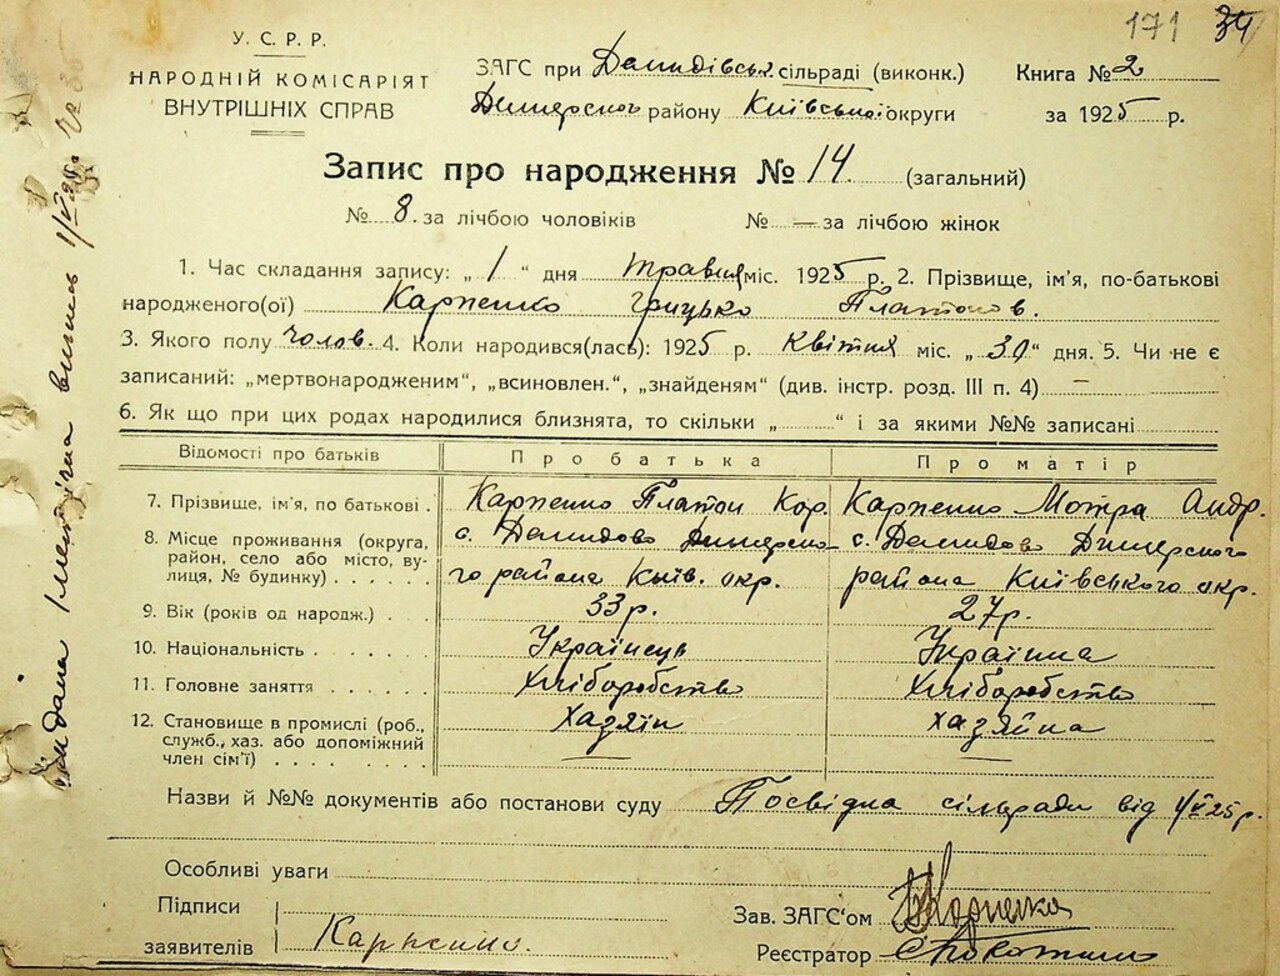 171 34
У. С. Р. Р.
НАРОДНІЙ КОМІСАРІЯТ
ВНУТРІШНІХ СПРАВ
ЗАГС при Демидівськ. сільраді (виконк.) Книга № 2
Димерского району Київської округи за 1925 р.
Запис про народження № 14. (загальний)
№ 8. за лічбою чоловіків № — за лічбою жінок
1. Час складання запису: „ 1 “ дня травня міс. 1925 р. 2. Прізвище, ім'я, по-батькові
народженого(ої) Карпенко Грицько Платонов.
3. Якого полу чолов. 4. Коли народився(лась): 1925 р. Квітня міс. „ 30 “ дня. 5. Чи не є
записаний: „мертвонародженим“, „всиновлен.“, „знайденям“ (див. інстр. розд. III п. 4) —
6. Як що при цих родах народилися близнята, то скільки „ “ і за якими №№ записані
Відомості про батьків Про батька Про матір
7. Прізвище, ім'я, по батькові . Карпенко Платон Кор. Карпенко Мотра Андр.
8. Місце проживання (округа, район, село або місто, вулиця, № будинку) . . . . . . с. Демидово Димерско- с. Демидово Димерского
го района Київ. окр. района Київського окр.
9. Вік (років од народж.) . . . 33 р. 27 р.
10. Національність . . . . . . Українець Українка
11. Головне заняття . . . . . . Хліборобство Хліборобство
12. Становище в промислі (роб., служб., хаз. або допоміжний член сім'ї) . . . . . . . . Хазяїн хазяйка
Назви й №№ документів або постанови суду Посвідка сільради від 1/V 25 р.
Особливі уваги
Підписи
заявителів Карпенко.
Зав. ЗАГС'ом Карпенко
Реєстратор